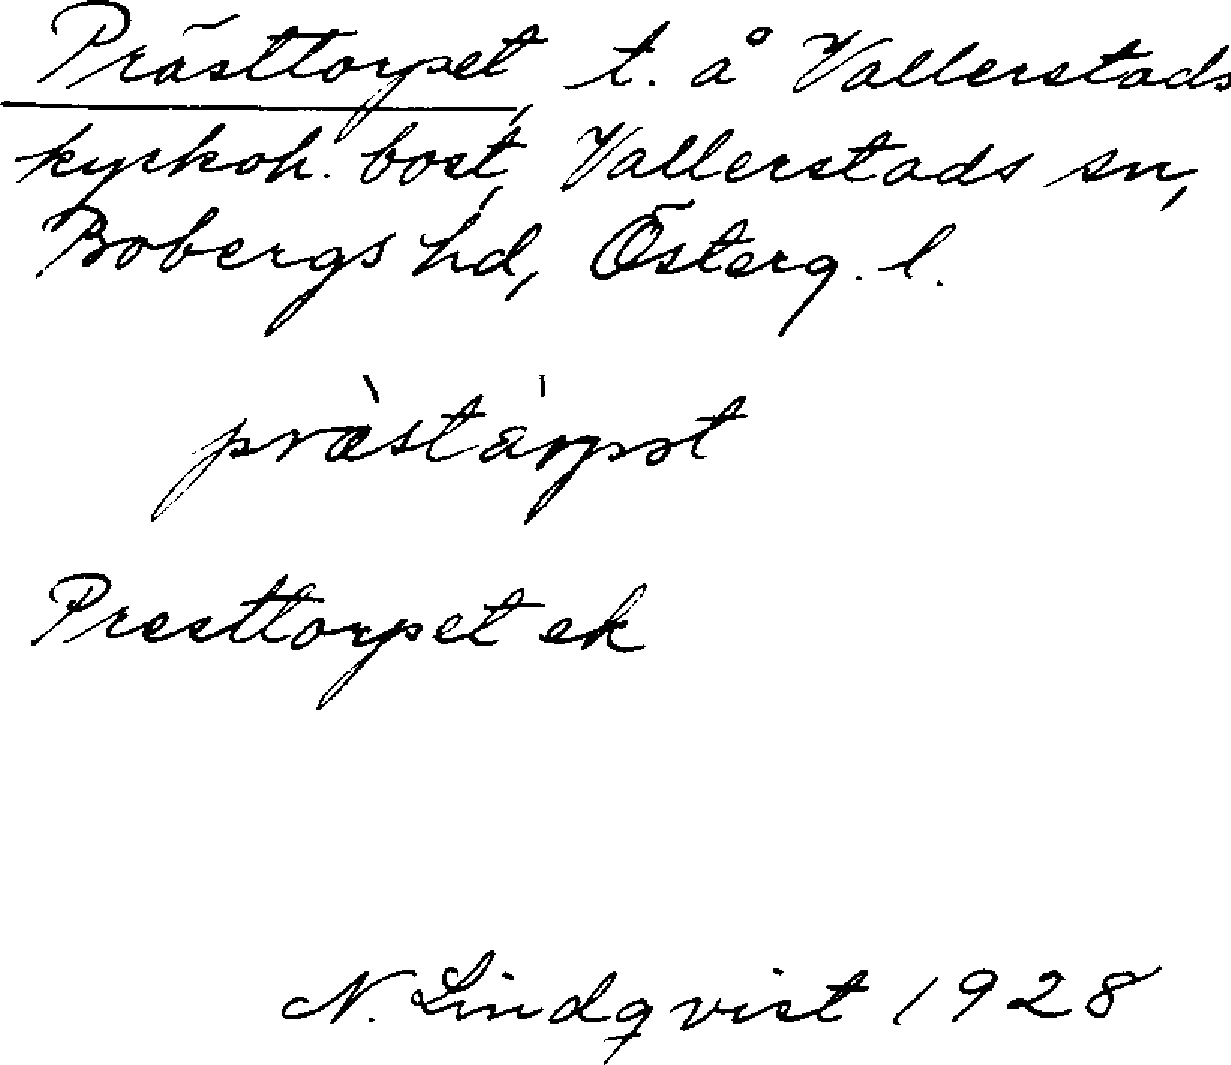 Prästtorpet, t. å Vallerstads
kyrkoh. bost, Vallerstads sn,
Bobergs hd, Österg. l.
Presttorpet ek
N. Lindqvist 1928